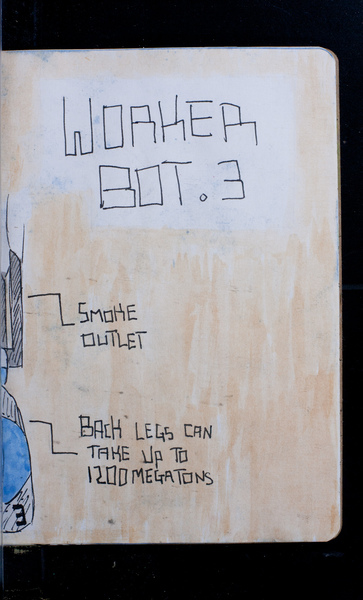 WORKER
BOT.3
SMOKE
OUTLET
BACK LEGS CAN
TAKE UP TO
1200 MEGATONS
3